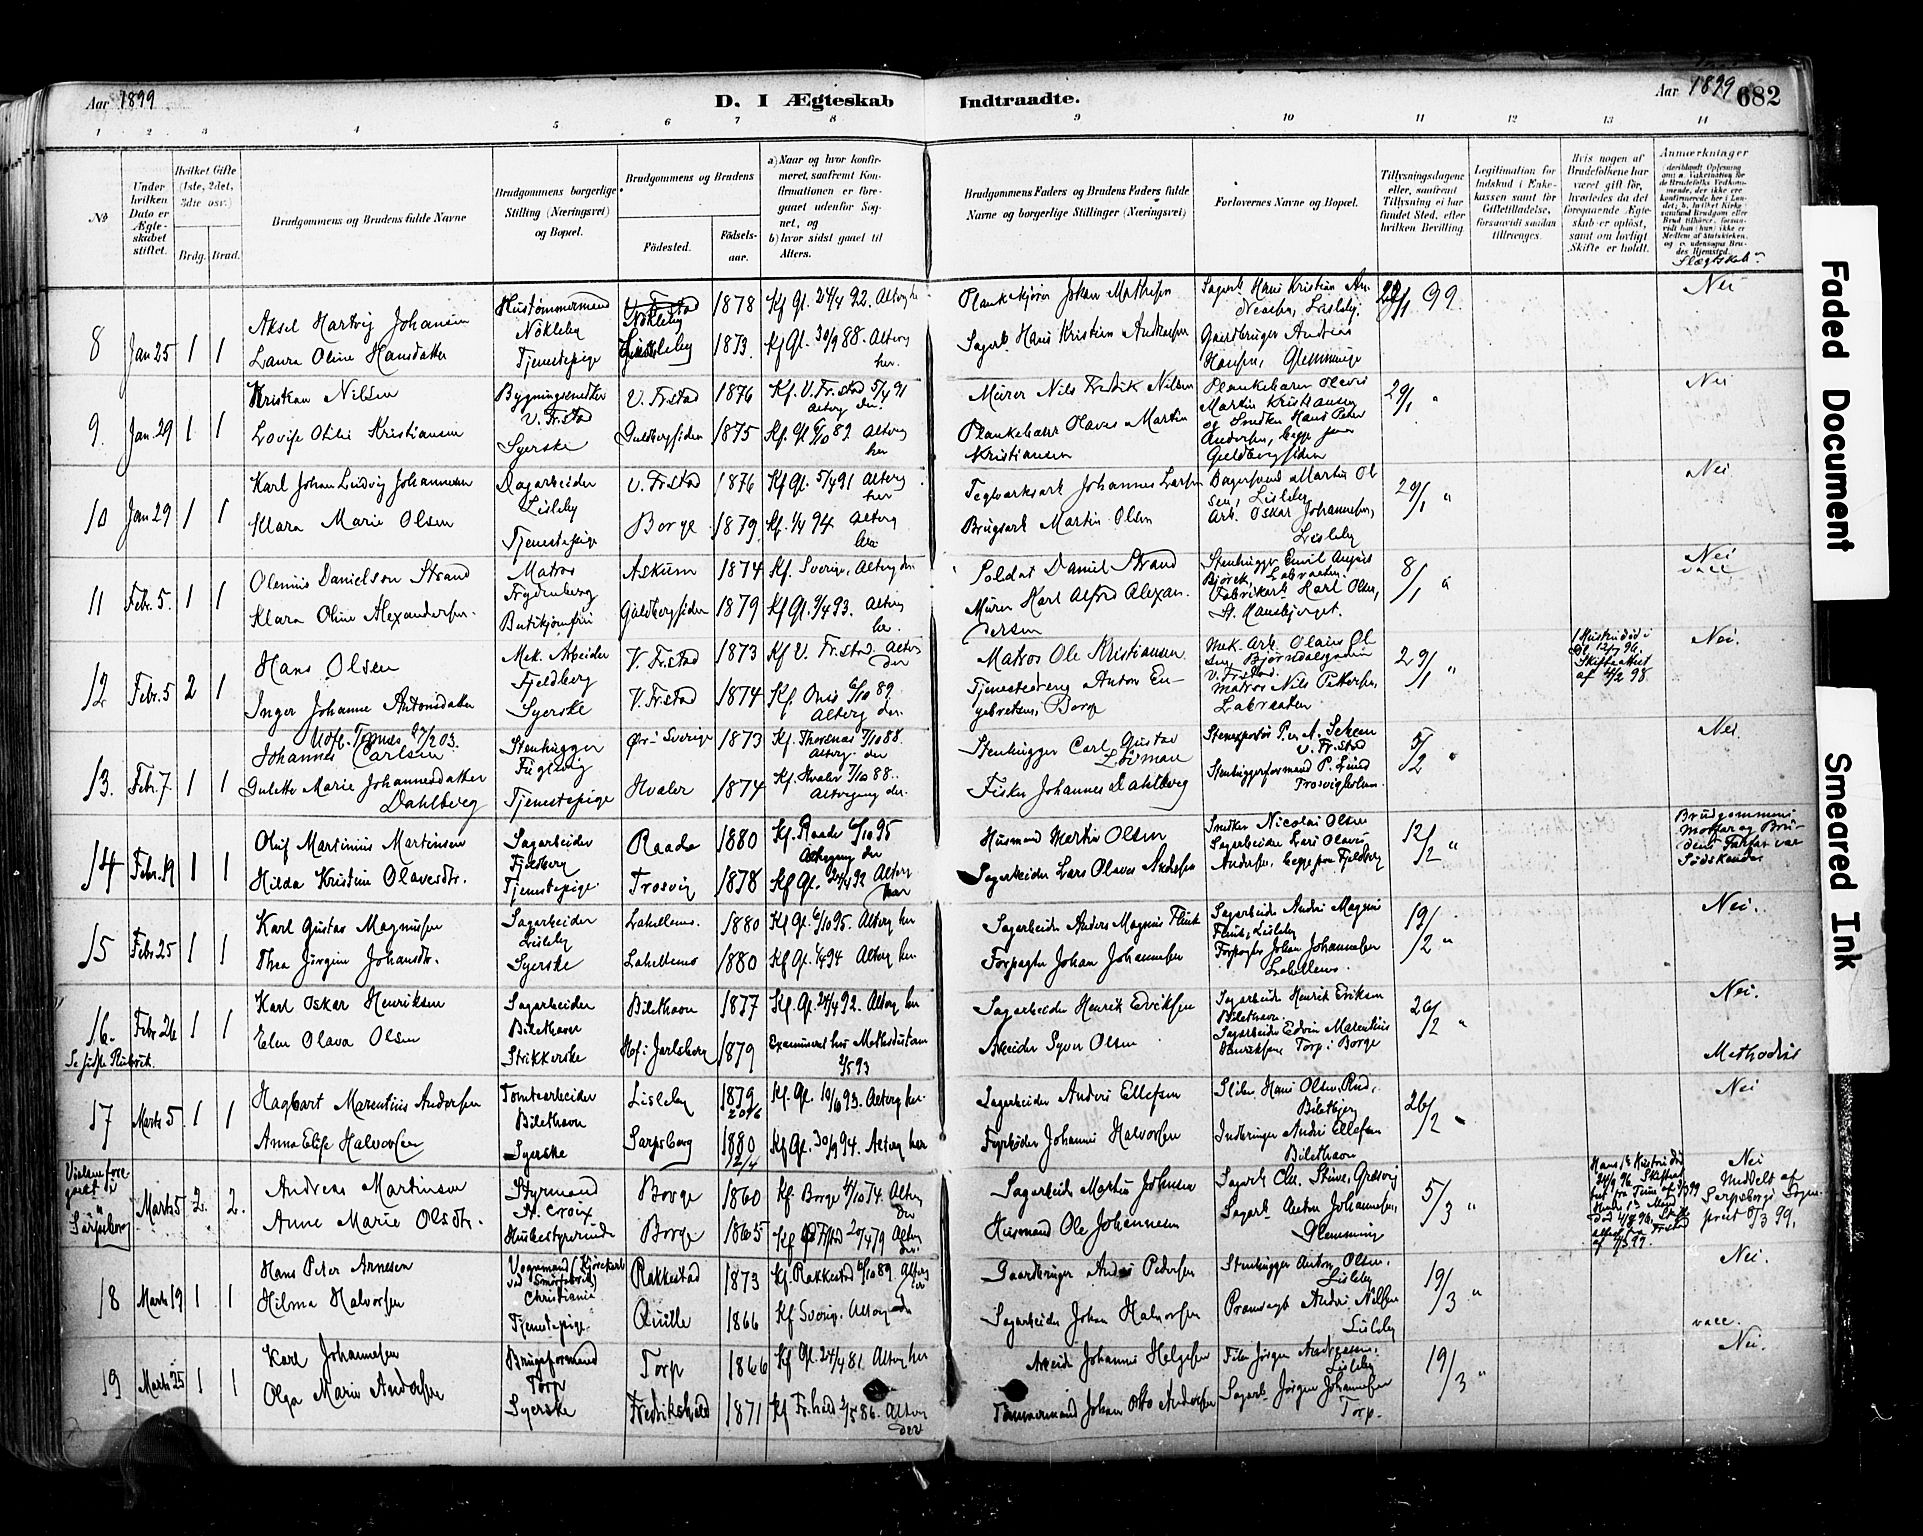 Aar 1899
D. I Ægteskab
Indtraadte.
Aar 1899
682
1 2 3 4 5 6 7 8 9 10 11 12 13 14
No
Under hvilken Dato er Ægteskabet stiftet.
Hvilket Gifte (1ste, 2det, 3die osv.)
Brdg. Brud.
Brudgommens og Brudens fulde Navne
Brudgommens borgerlige Stilling (Næringsvei) og Bopæl.
Brudgommens og Brudens
Födested.
Födselsaar.
a) Naar og hvor konfirmeret, samt om Konfirmationen er foregaaet udenfor Sognet, og
b) hvor sidst gaaet til Alters.
Brudgommens Faders og Brudens Faders fulde Navne og borgerlige Stillinger (Næringsvei)
Forlovernes Navne og Bopæl.
Tillysningsdagene eller, saafremt Tillysning ei har fundet Sted, efter hvilken Bevilling.
Legitimation for Indskud i Enkekassen samt for Giftetilladelse, forsaavidt saadan tiltrænges.
Hvis nogen af Brudefolkene har været gift før, hvorledes da det foregaaende Ægteskab er opløst, samt om lovligt Skifte er holdt.
Anmærkninger
Slægtskab
8 Jan 25 1 1
Aksel Hartvig Johansen
Hustømmermand
Nökleby
Nökleby
1878
Kf Gl. 24/4 92. Alterg her
Plankekjører Johan Mathisen
Sagarb. Hans Kristian Andreasen, Lisleby.
99.
Nei
Laura Oline Hansdatter
Tjenestepige
Lisleby
1873.
Kf Gl. 30/9 88. Alterg her.
Sagarb. Hans Kristian Andreasen
Gaardbruger Andreas Hansen, Glemminge
9. Jan. 29 1 1
Kristian Nilsen
Bygningssnedker
V. Fr.stad
V. Fr.stad
1876
Kf. V. Fr.stad 5/4 91
Alterg der.
Murer Nils Fredrik Nilsen
Plankebærer Olavus Martin Kristiansen
og Snedker Hans Peter Andersen, begge paa Guldbergsiden
29/1 "
Nei
Lovise Otilie Kristiansen
Syerske
Guldbergsiden
1875
Kf. Gl 6/10 89 Alterg her
Plankebærer Olaves Martin Kristiansen
10 Jan 29 1 1
Karl Johan Ludvig Johannesen
Dagarbeider
Lisleby
V. Fr.stad
1876
Kf Gl. 5/4 91 Alterg her
Teglverksarb Johannes Larsen
Bagersvend Martin Olsen, Lisleby
Arb. Oskar Johannesen, Lisleby
29/1 "
Nei
Klara Marie Olsen
Tjenestepige
Borge
1879
Kf. 94 Alterg her
Brugsarb Martin Olsen
11 Febr. 5. 1 1
Olenius Danielson Strand
Matros
Frydenberg
Askum
1874
Kf. Sverige, Alterg der
Soldat Daniel Strand
Stenhugger Emil August Bjørck, Labraaten.
Fabrikarb Karl Olsen, St. Hansbjerget.
8/1 "
Nei
vacc
Klara Oline Alexandersen.
Butikjomfru
Guldbergsiden
1879
Kf Gl. 9/4 93. Alterg her.
Murer Karl Alfred Alexandersen
12 Febr. 5 2 1
Hans Olsen
Mek. Arbeider
Fjeldberg
V. Fr.stad
1873
Kf V. Fr.stad. Alterg der
Matros Ole Kristiansen
Mek. Arb. Olaus Olsen, Bjørndalsgaden V. Fr.stad.
Matros Nils Pettersen, Labraaten
29/1 "
Nei.
Inger Johanne Antonsdatter
Syerske
V. Fr.stad
1874
Kf. Onsø 6/10 89. Alterg der.
Tjenestedreng Anton Engebretsen, Borge
13. Febr. 7 1 1
Johannes Carlsen
Stenhugger
Fuglevig
Sverige
1873
Kf. Thorsnæs 7/10 88. Alterg. der
Stenhugger Carl Gustav Löfman
V. Fr.stad
5/2 "
Nei.
Gulette Marie Johannesdatter Dahlberg
Tjenestepige
Hvaler
1874
Kf. Hvaler 7/10 88. Altergang der.
Fisker Johannes Dahlberg
Stenhuggerformand P. Lund Trosvigholm.
14 Febr. 19 1 1
Oluf Martinius Martinsen
Sagarbeider
Fjeldberg
Raade
1880
Kf. Raade 6/10 95
Altergang der
Husmand Martin Olsen
Snedker Nicolai Olsen
Sagarbeider Lars Olaves Andersen, begge paa Fjeldberg
12/2 "
Brudgommens Morfar og Brudens Farfar var Södskende
Hilda Kristine Olavesdtr.
Tjenestepige.
Trosvig
1878
Kf Gl. 24/4 92 Alterg her
Sagarbeider Lars Olaves Andersen
15 Febr 25 1 1
Karl Gustav Magnusen
Sagarbeider
Lisleby
Lahellens.
1880
Kf Gl. 6/10 95. Alterg her
Sagarbeider Anders Magnus Flink
Sagarbeider Anders Magnus Flink, Lisleby
Forpagter Johan Johannesen Lahellens.
19/2 "
Nei.
Thea Jörgine Johansdtr.
Syerske
Lahellens
1880
Kf Gl. 94 Alterg her.
Forpagter Johan Johannesen
16. Febr. 26 1 1
Karl Oskar Henriksen
Sagarbeider
Bilethavn
Bilethavn
1877
Kf. Gl. 24/4 92. Alterg her
Sagarbeider Henrik Eriksen
Sagarbeider Henrik Eriksen Bilethavn.
Sagarbeider Edvin Marentius Henriksen Torp i Borge
26/2 "
Nei.
Elen Olava Olsen
Strikkerske
Hof i Jarlsberg
1879
Examineret hos Methodisterne 2/5 93
Arbeider Syver Olsen
Methodist
17 Marts 5. 1 1
Hagbart Marentius Andersen
Tomtearbeider
Bilethavn
Lisleby
1879
Kf. Gl. 93. Alterg her.
Sagarbeider Anders Ellefsen
Sliber Hans Olsen Rud, Biletbjerg
Indbringer Anders Ellefsen Bilethavn
26/2
Nei
Anna Elise Halvorsen
Syerske
Sarpsborg
1880
Kf Gl. 30/9 94. Alterg her
Fyrbøder Johannes Halvorsen
Vielsen foregaaet i Sarpsborg
Marts 5 2. 2.
Andreas Martinsen
Styrmand
St. Croix
Borge
1860
Kf. Borge 4/10 74. Alterg der
Sagarbeider Martin Johnsen
Sagarb. Chr. Stene, Græsvig
Sagarb. Anton Johannesen, Glemminge
5/3 "
Nei
Meddelt af Sarpsborgs Sognepræst 8/3 99.
Anne Marie Olsdtr.
Husbestyrerinde
Borge
1865
Kf Fr.stad 20/4 79 Alterg der
Husmand Ole Johannesen
18 Marts 19 1 1
Hans Peter Arnesen
Vognmand (Kjörekarl ved Smörfabrik) Christiania
Rakkestad
1873
Kf. Rakkestad 6/10 89 Alterg der
Gaardbruger Anders Pedersen
Stenhugger Anton Olsen, Lisleby
19/3 "
Nei.
Hilma Halvorsen
Tjenestepige.
Quille
1866
Kf Sverig. Alterg
Sagarbeider Johan Halvorsen
Pramvagt Anders Nilsen Lisleby
vacc.
19 Marts 25 1 1
Karl Johannesen
Brugsformand
Torp
Torp
1866
Kf Gl. 24/4 81 Alterg her
Arbeider Johannes Helgesen
Filer Jörgen Andreasen, Lisleby
19/3 "
Nei.
Olga Marie Andersen
Syerske
Fredrikshald
1871
Kf Fr.hald 2/5 86. Alterg der
Tömmermand Johan Otto Andersen
Sagarb. Jörgen Johannesen Torp.
Faded Document
Smeared Ink